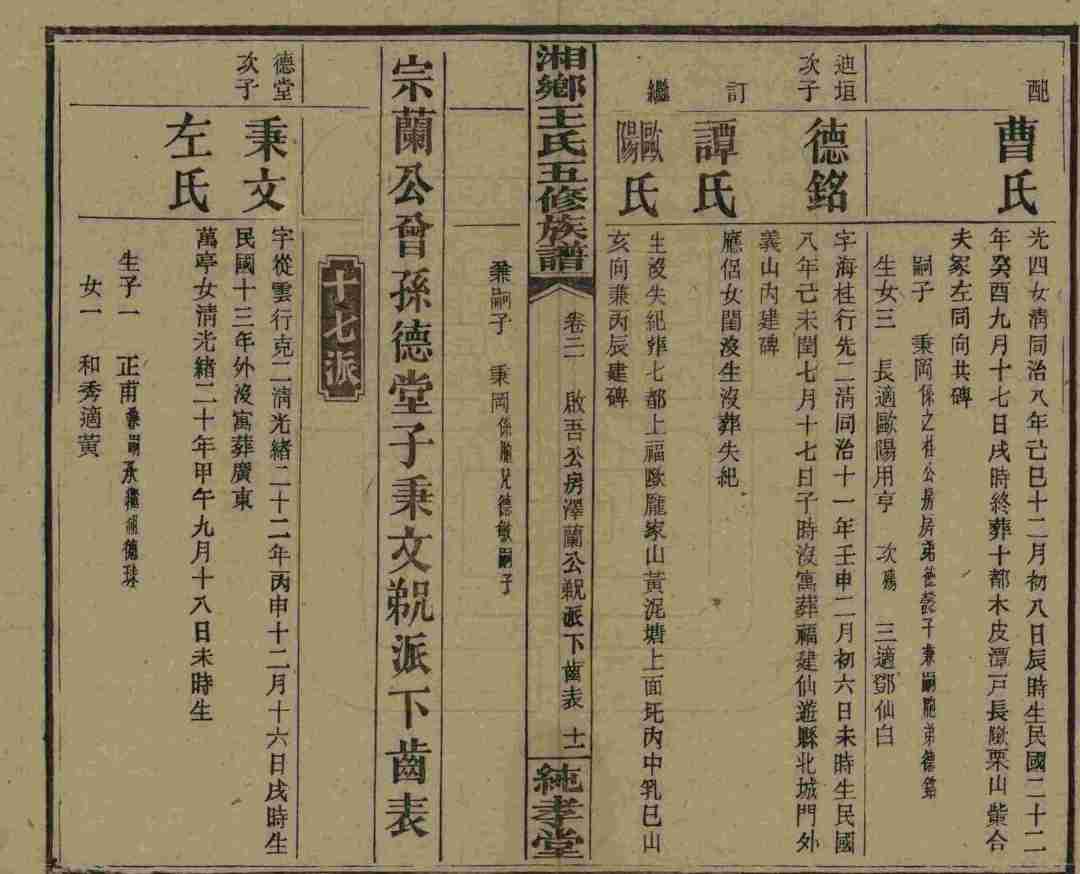 配
曹氏
光四女淸同治八年己巳十二月初八日辰時生民國二十二
年癸酉九月十七日戌時終葬十都木皮潭戸長墩栗山紫合
夫冢左同向共碑
嗣子 秉岡係之桂公房房弟德懿子兼嗣胞弟德銘
生女三 長適歐陽用亨 次殤 三適鄧仙白
迪垣
次子
德銘
字海桂行先二淸同治十一年壬申二月初六日未時生民國
八年己未閏七月十七日子時沒寓葬福建仙遊縣北城門外
義山內建碑
訂
譚氏
應侶女閨沒生沒葬失紀
繼
歐陽氏
生沒失紀葬七都上福歐龐家山黃泥塘上面圫丙中乳巳山
亥向兼丙辰建碑
湘鄉王氏五修族譜
卷二 啟吾公房澤蘭公覜派下齒表 十一
純孝堂
兼嗣子 秉岡係胞兄德敏嗣子
宗蘭公曾孫德堂子秉文覜派下齒表
十七派
德堂
次子
秉文
字從雲行克二淸光緒二十二年丙申十二月十六日戌時生
民國十三年外沒寓葬廣東
左氏
萬亭女淸光緒二十年甲午九月十八日未時生
生子一 正甫兼嗣承繼祖德珠
女一 和秀適黃